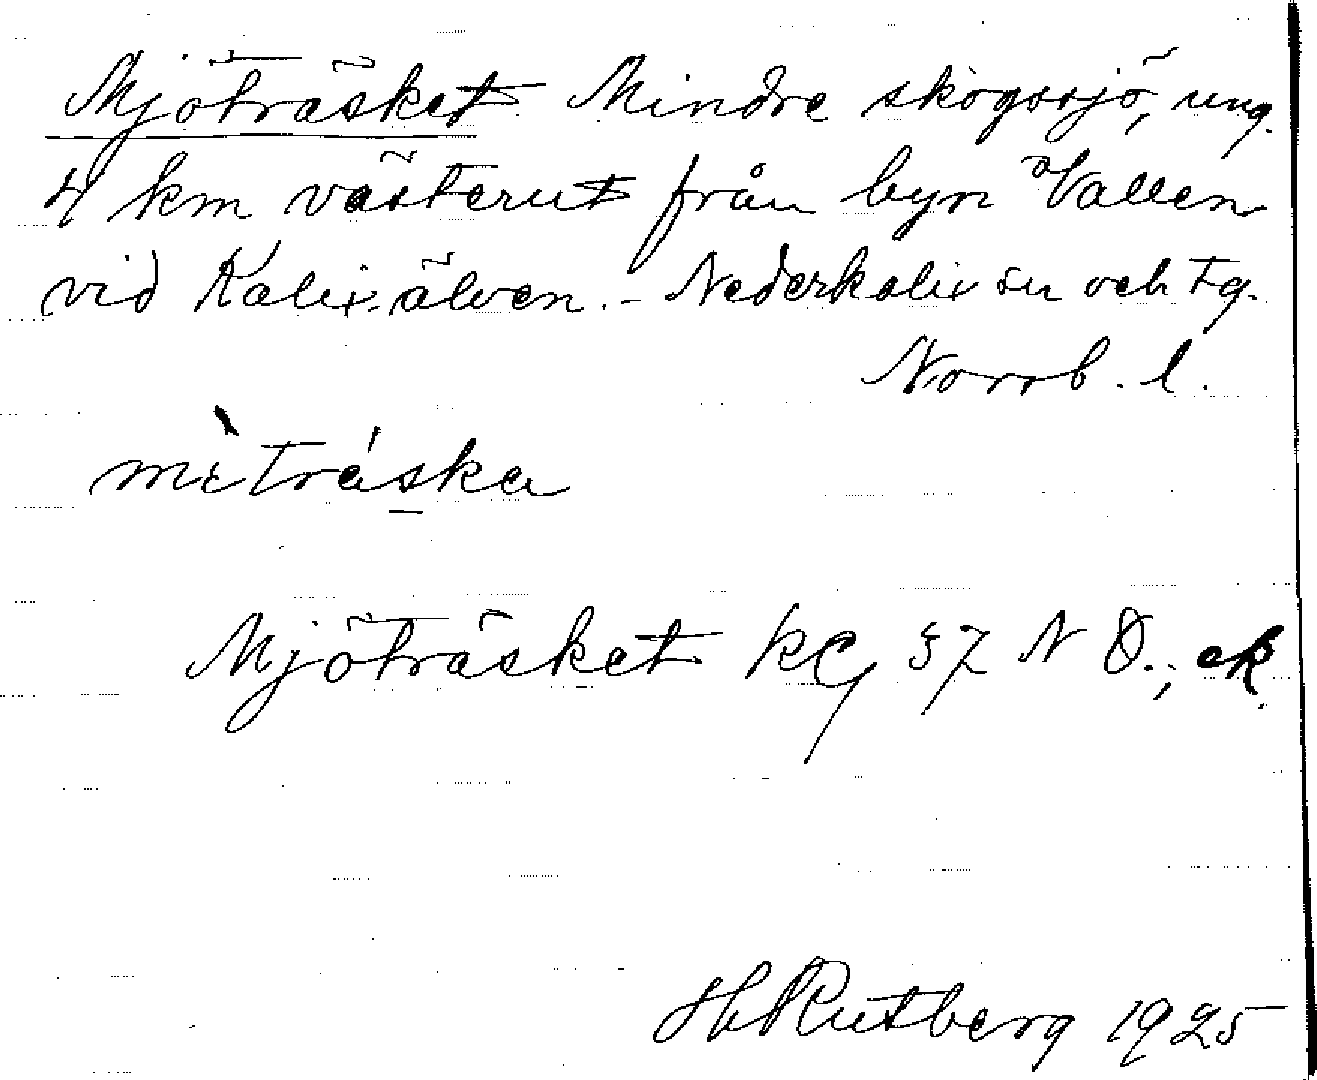 Mjöträsket Mindre skogssjö, ung.
4 km västerut från byn Vallen
vid Kalixälven. - Nederkalix sn och tg.
Norrb. l.
mè̀tráska
Mjöträsket kg 57 N Ö., ek.
H Rutberg 1925